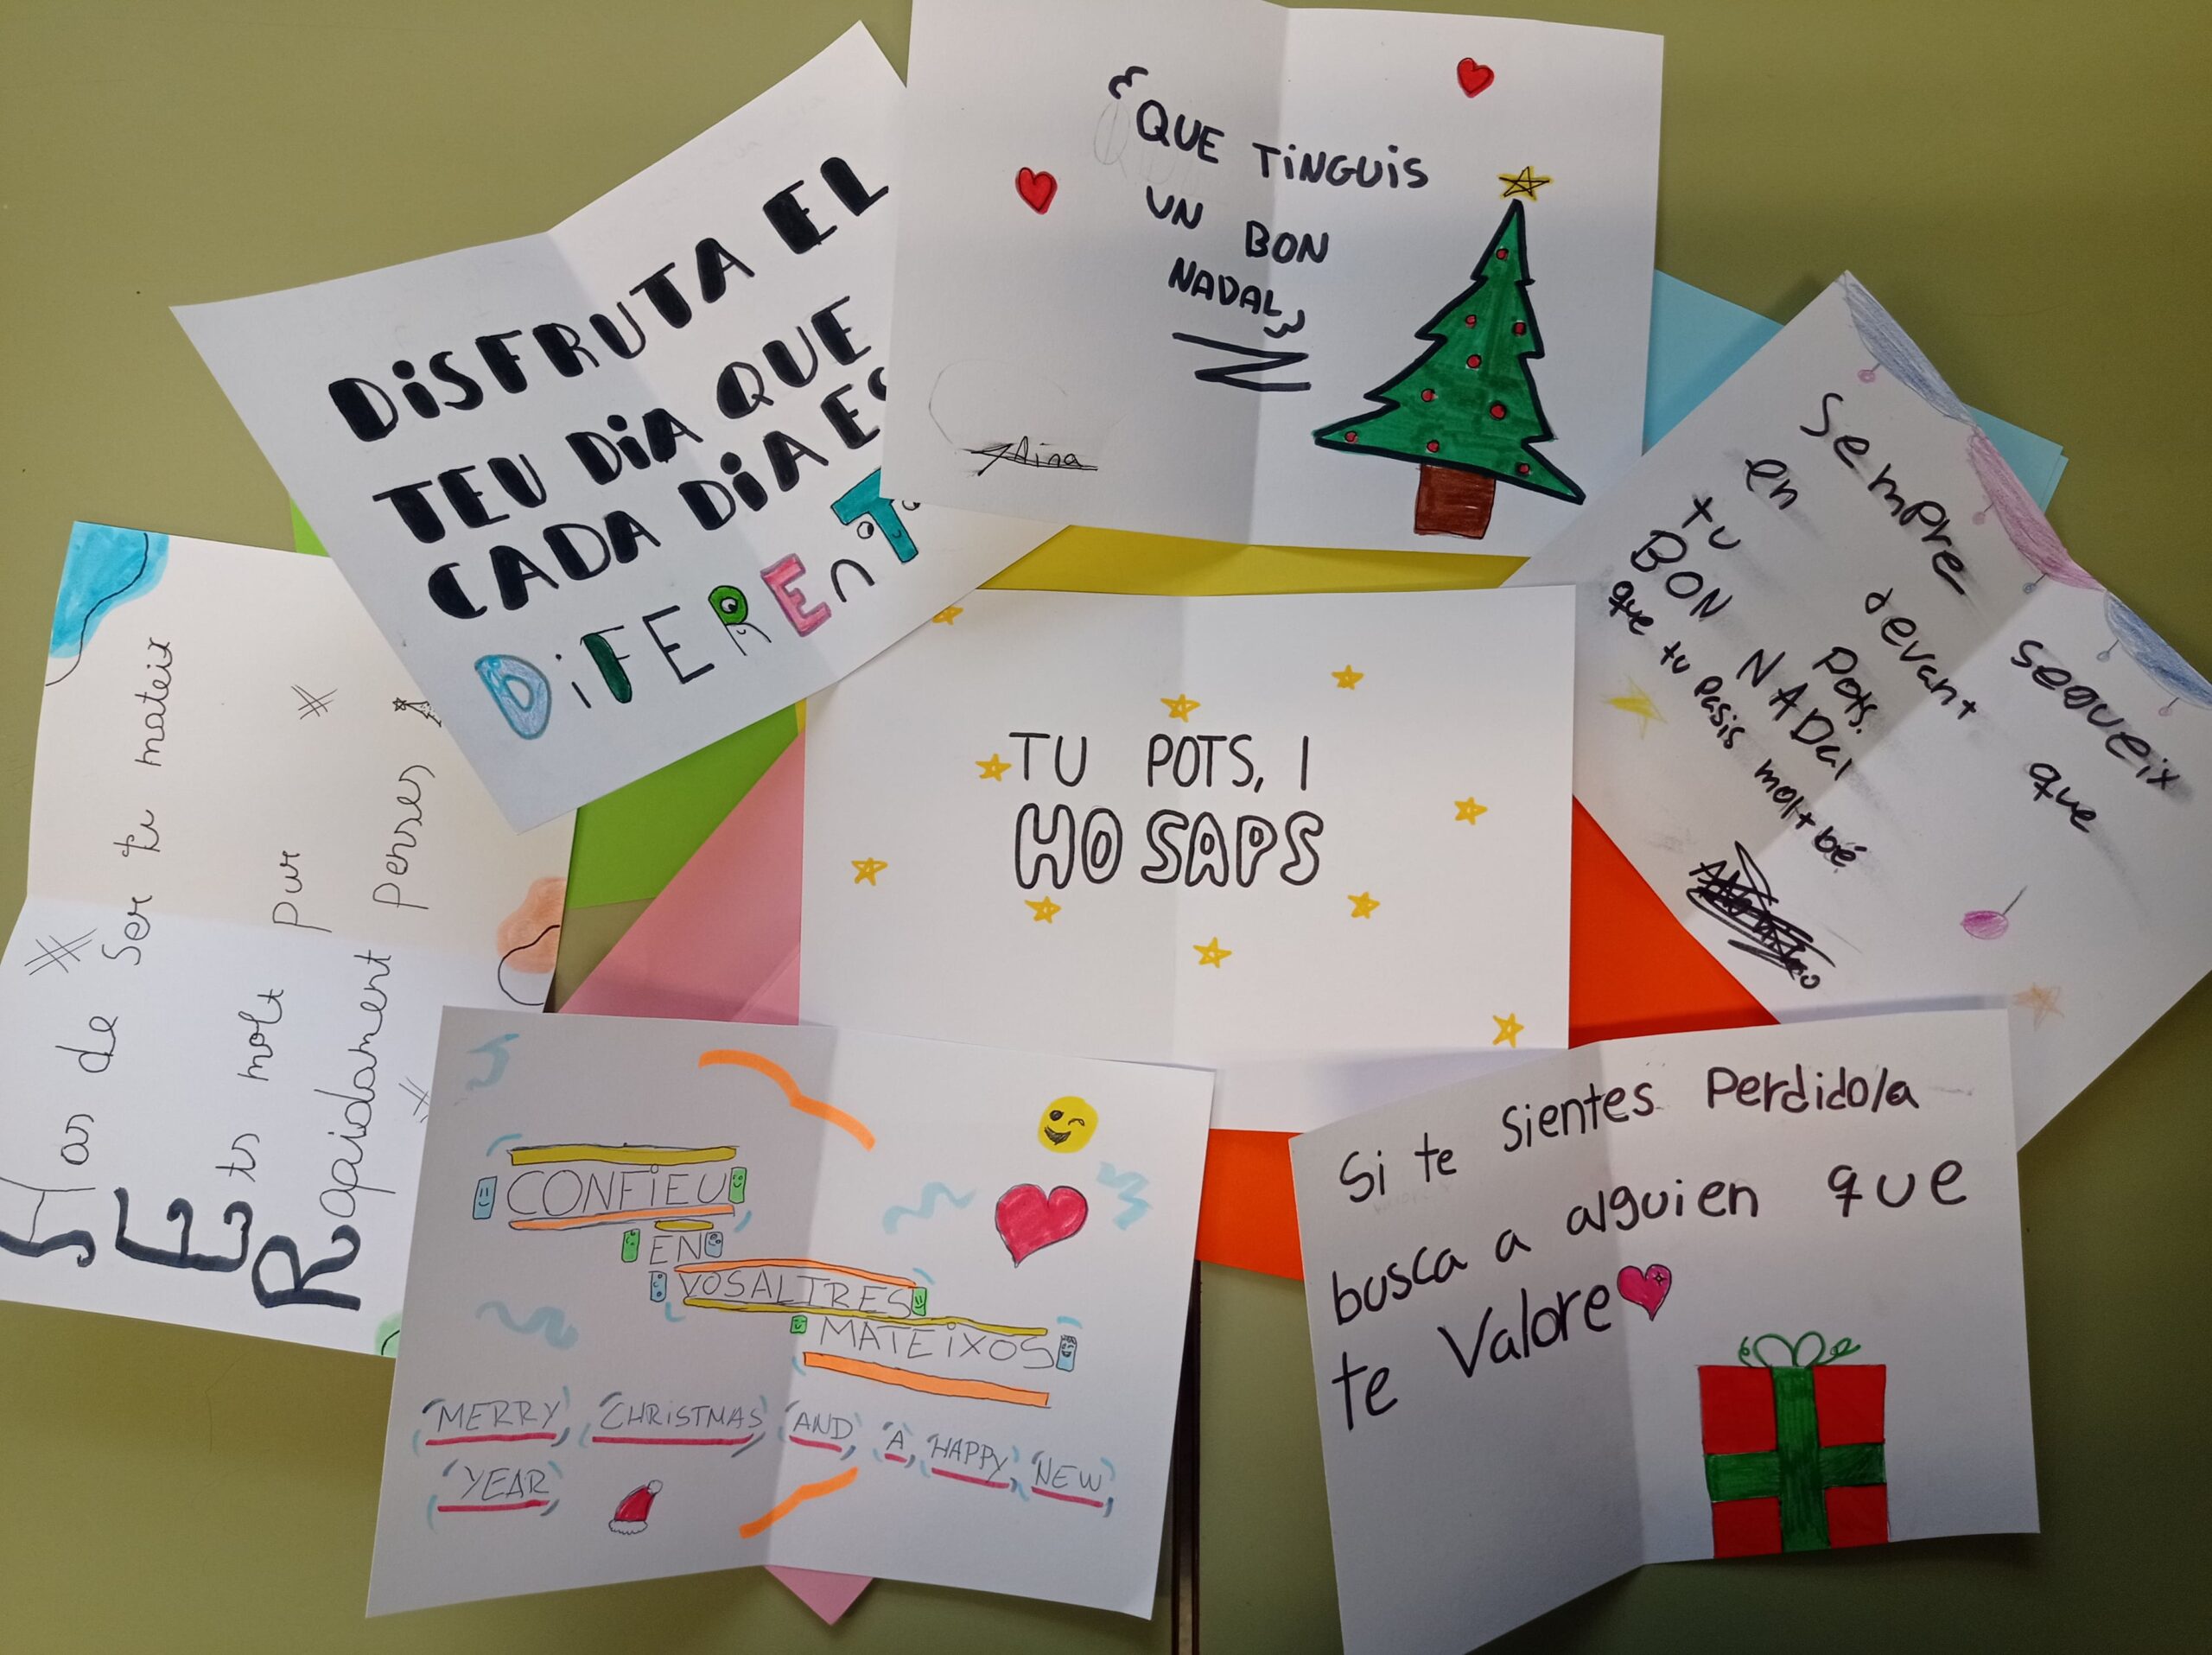 QUE TINGUIS
UN BON
NADAL
Aina
DISFRUTA EL
TEU DIA QUE
CADA DIA ES
DIFERENT
Sempre segueix
en devant que
tu pots.
BON NADAl
que tu pasis molt bé
TU POTS, I
HO SAPS
Has de Ser tu mateix
Ets molt pur
Rapaidament penses
CONFIEU
EN
VOSALTRES
MATEIXOS
MERRY CHRISTMAS AND A HAPPY NEW
YEAR
Si te sientes Perdido/a
busca a alguien que
te Valore